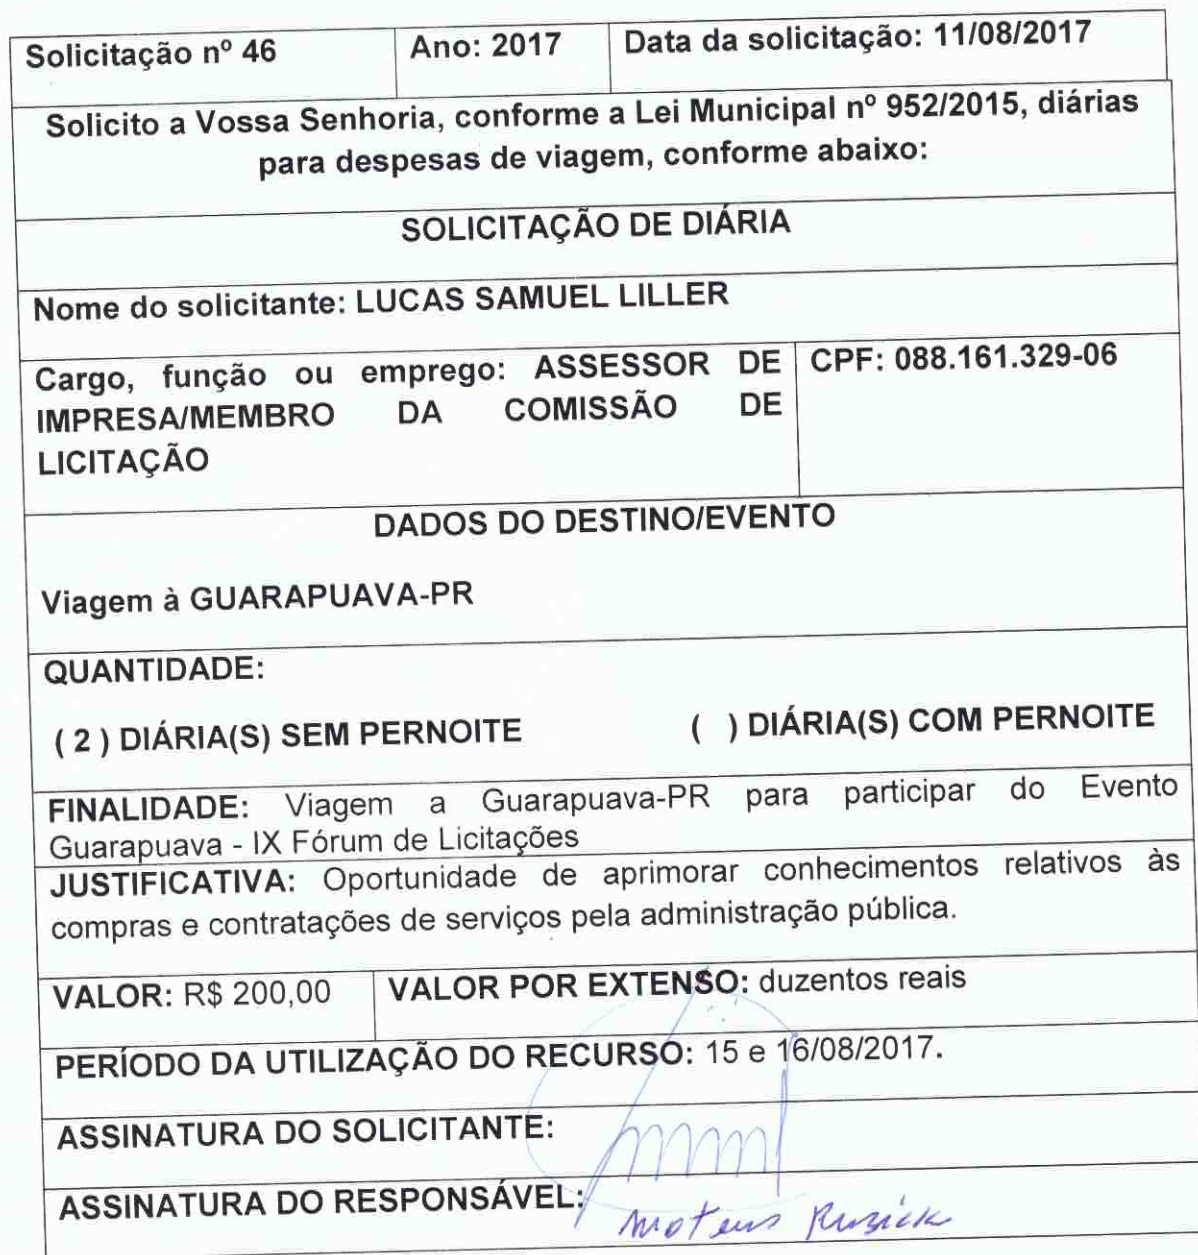 Solicitação nº 46 Ano: 2017 Data da solicitação: 11/08/2017
Solicito a Vossa Senhoria, conforme a Lei Municipal nº 952/2015, diárias
para despesas de viagem, conforme abaixo:
SOLICITAÇÃO DE DIÁRIA
Nome do solicitante: LUCAS SAMUEL LILLER
Cargo, função ou emprego: ASSESSOR DE CPF: 088.161.329-06
IMPRESA/MEMBRO DA COMISSÃO DE
LICITAÇÃO
DADOS DO DESTINO/EVENTO
Viagem à GUARAPUAVA-PR
QUANTIDADE:
( 2 ) DIÁRIA(S) SEM PERNOITE ( ) DIÁRIA(S) COM PERNOITE
FINALIDADE: Viagem a Guarapuava-PR para participar do Evento
Guarapuava - IX Fórum de Licitações
JUSTIFICATIVA: Oportunidade de aprimorar conhecimentos relativos às
compras e contratações de serviços pela administração pública.
VALOR: R$ 200,00 VALOR POR EXTENSO: duzentos reais
PERÍODO DA UTILIZAÇÃO DO RECURSO: 15 e 16/08/2017.
ASSINATURA DO SOLICITANTE:
ASSINATURA DO RESPONSÁVEL: